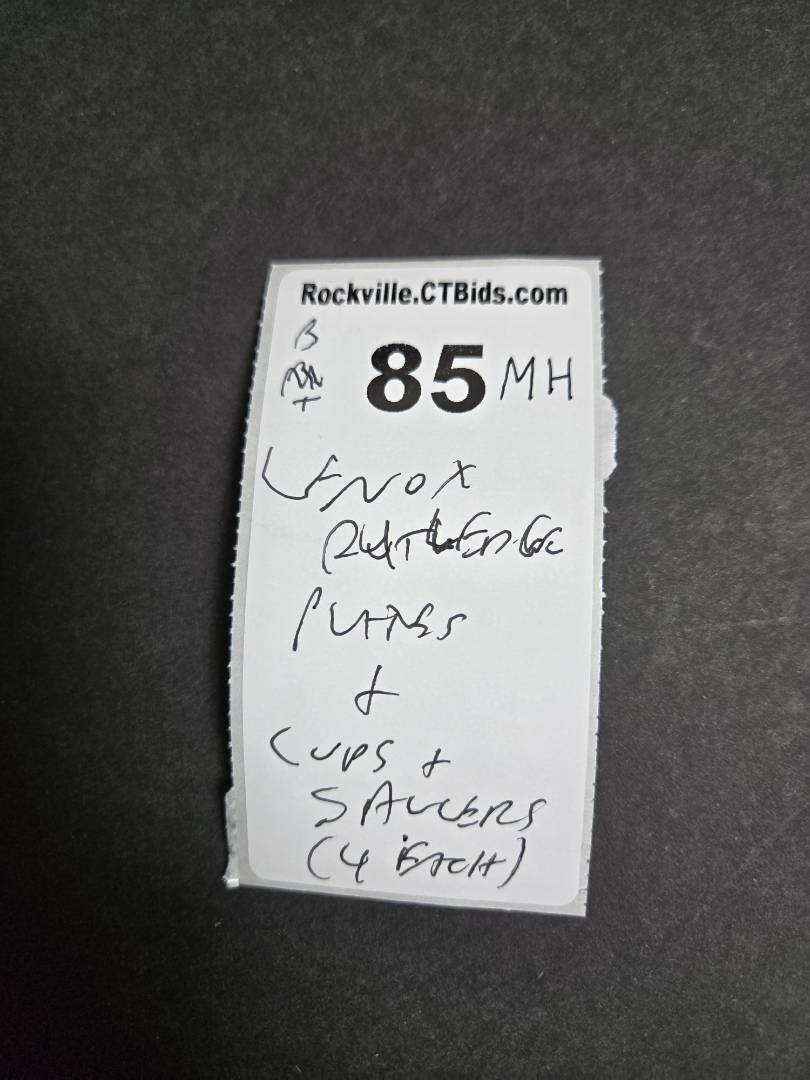 Rockville.CTBids.com
B
85 MH
LENOX
RUTLEDGE
PLATES
+
CUPS +
SAUCERS
(4 EACH)